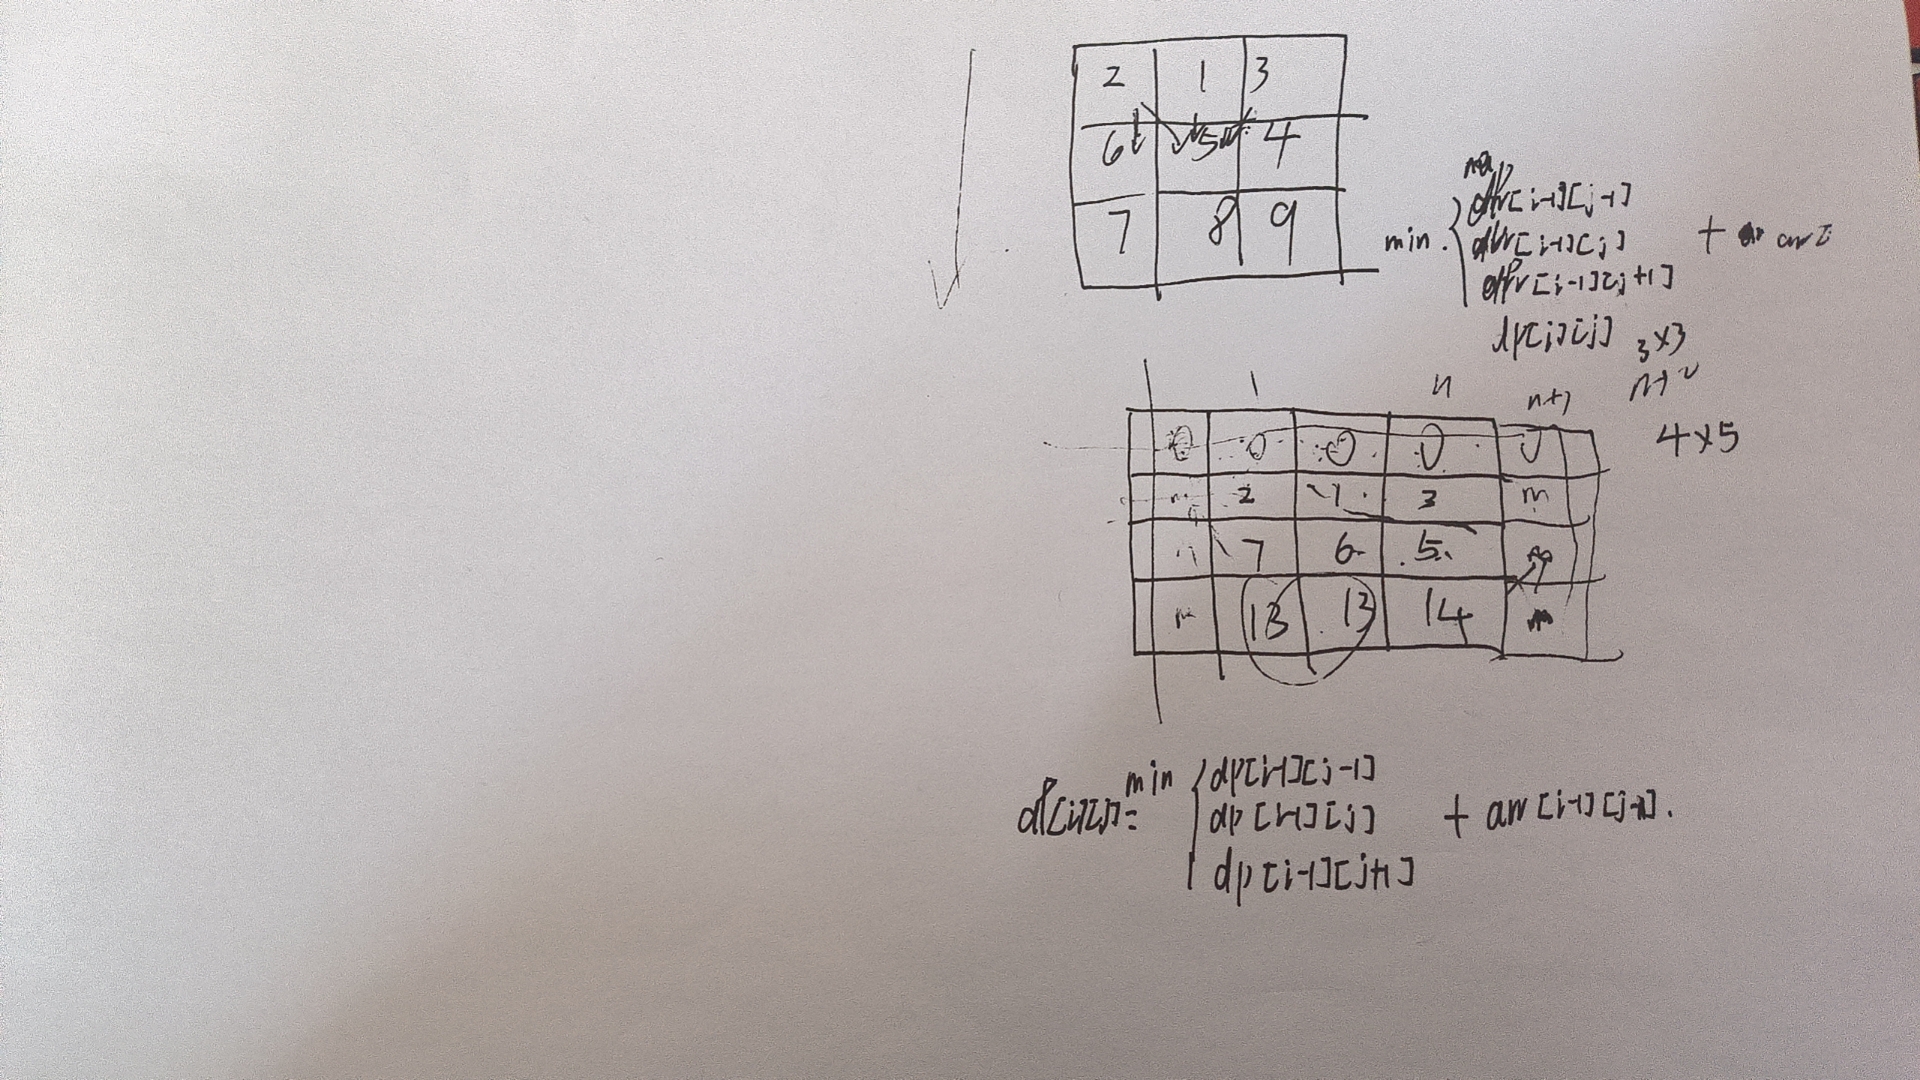 2 1 3
6 5 4
7 8 9
min
[i-1][j-1]
[i-1][j]
[i-1][j+1]
+ arr
dp[i][j] 3×3
4×5
1 n n+1
0 0 0 0 0
m 2 1 3 m
7 6 5
m 13 13 14 m
dp[i][j]= min
dp[i-1][j-1]
dp[i-1][j]
dp[i-1][j+1]
+ arr[i-1][j-1].